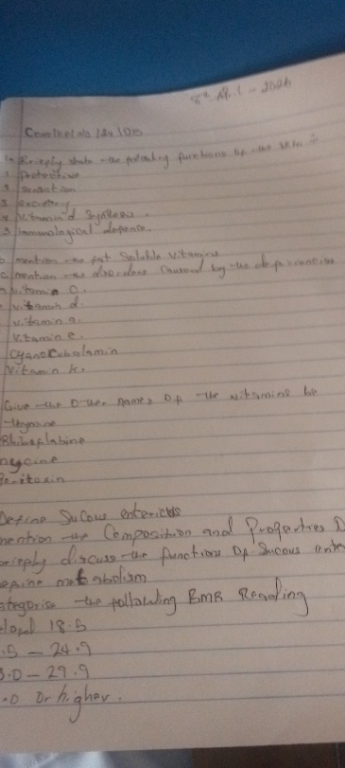 1a Briefply state the following functions of the skin :-
1 Protective
2 Sensation
3 Excretory
4 Vitamin d Synthesis.
5 Immunological depence.
b mention the fat Soluble Vitamins
c mention the disorders Caused by the depiciencies
Vitamin C.
Vitamin d.
Vitamin a.
Vitamin e.
Cyanocobalamin
Vitamin k.
Give the Other names Of the vitamins be
Thymine
Rhiboplabine
Define Sucous entericus
mention the Composition and Properties
briefly discuss the functions Of Sucous ente
Define metabolism
ategorise the pollowing BMR Reading
18.5
.5 - 24.9
5.0 - 29.9
.0 Or higher.